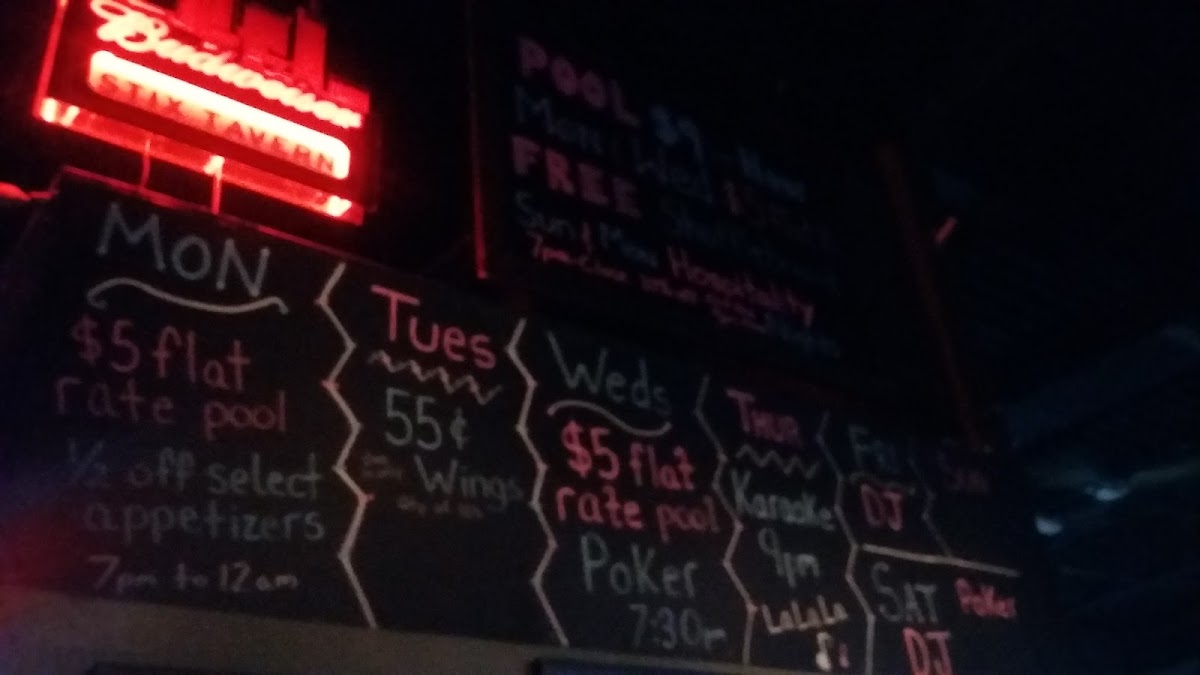 Budweiser
STIX TAVERN
POOL $9 - Hour
FREE
Sun & Mon Hospitality
MON
$5 flat
rate pool
1/2 off select
appetizers
7pm to 12am
Tues
55¢
Wings
Weds
$5 flat
rate pool
Poker
7:30p
THUR
Karaoke
9pm
LaLaLa
Fri
DJ
Sun
SAT Poker
DJ